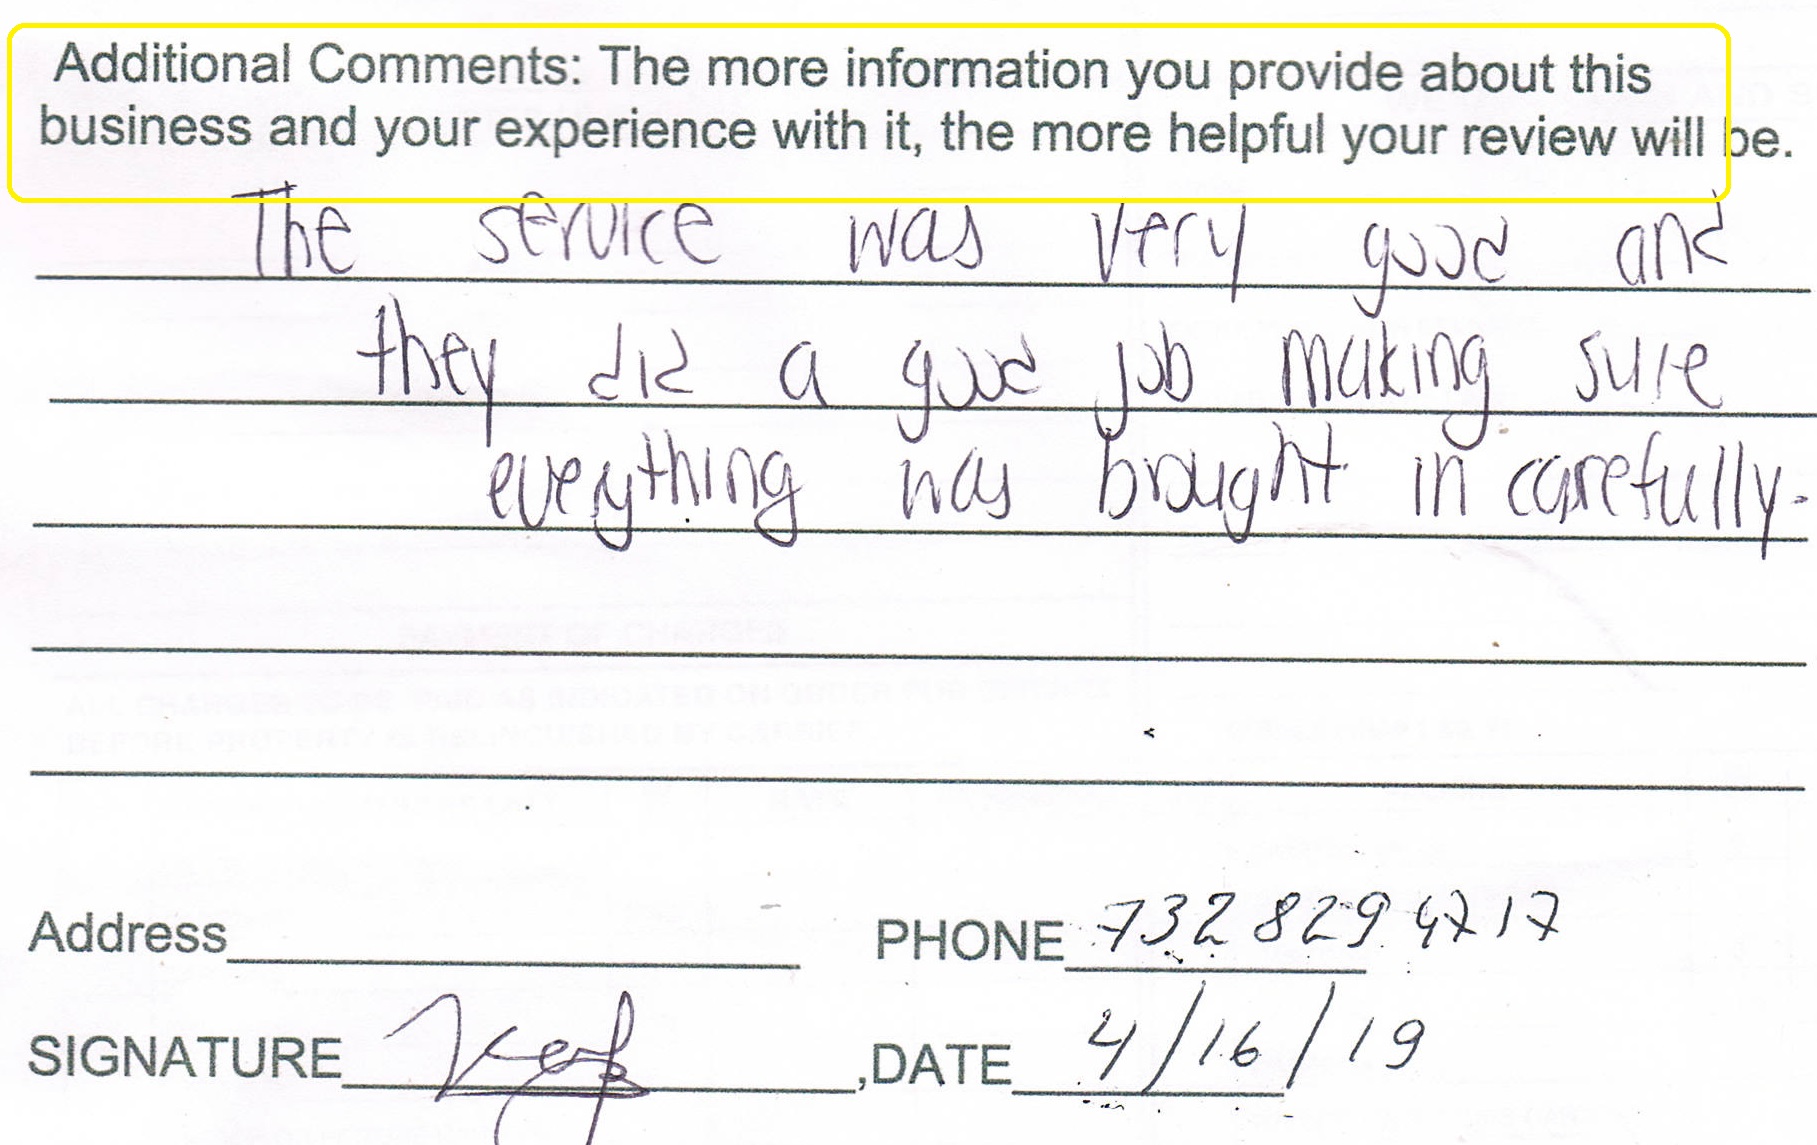 Additional Comments: The more information you provide about this
business and your experience with it, the more helpful your review will be.
The service was very good and
they did a good job making sure
everything was brought in carefully.
Address PHONE 732 829 4717
SIGNATURE ,DATE 4/16/19